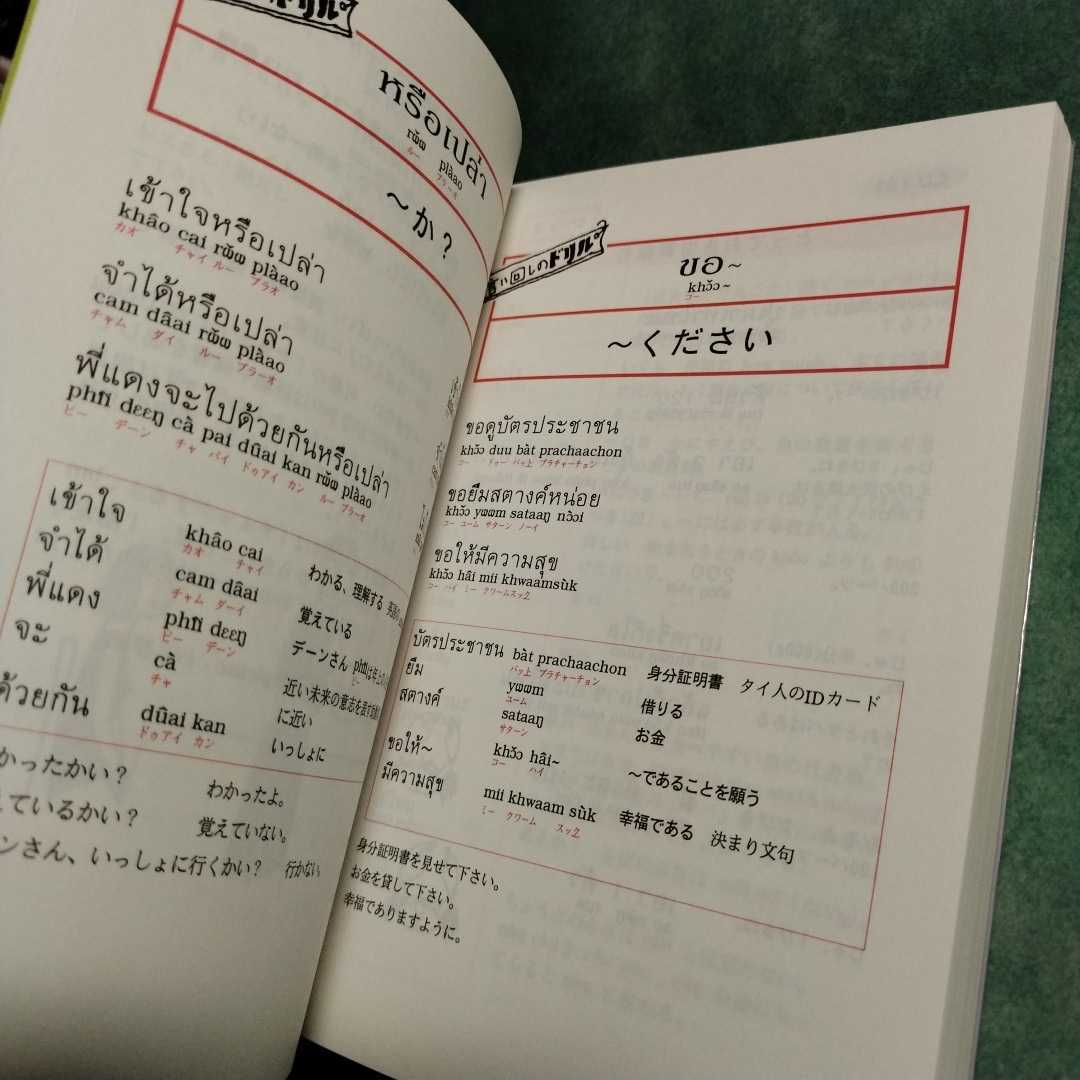 ドリル
หรือเปล่า
rʉ̌ʉ plàao
ルー プラーオ
～か？
เข้าใจหรือเปล่า
khâo cai rʉ̌ʉ plàao
カオ チャイ ルー プラオ
จำได้หรือเปล่า
cam dâai rʉ̌ʉ plàao
チャム ダイ ルー プラーオ
พี่แดงจะไปด้วยกันหรือเปล่า
phîi dɛɛŋ cà pai dûai kan rʉ̌ʉ plàao
ピー デーン チャ パイ ドゥアイ カン ルー プラーオ
เข้าใจ khâo cai わかる、理解する
カオ チャイ
จำได้ cam dâai 覚えている
チャム ダーイ
พี่แดง phîi dɛɛŋ デーンさん phîiは年上の
ピー デーン ピー
จะ cà 近い未来の意志を表す
チャ に近い
ด้วยกัน dûai kan いっしょに
ドゥアイ カン
かったかい？ わかったよ。
えているかい？ 覚えていない。
ンさん、いっしょに行くかい？ 行かない。
言い回しのドリル
ขอ～
khɔ̌ɔ～
コー
～ください
ขอดูบัตรประชาชน
khɔ̌ɔ duu bàt prachaachon
コー ドゥー バッ上 プラチャーチョン
ขอยืมสตางค์หน่อย
khɔ̌ɔ yʉʉm sataaŋ nɔ̀ɔi
コー ユーム サターン ノーイ
ขอให้มีความสุข
khɔ̌ɔ hâi mii khwaamsùk
コー ハイ ミー クワームスック
บัตรประชาชน bàt prachaachon 身分証明書 タイ人のIDカード
バッ上 プラチャーチョン
ยืม yʉʉm 借りる
ユーム
สตางค์ sataaŋ お金
サターン
ขอให้～ khɔ̌ɔ hâi～ ～であることを願う
コー ハイ
มีความสุข mii khwaam sùk 幸福である 決まり文句
ミー クワーム スック
身分証明書を見せて下さい。
お金を貸して下さい。
幸福でありますように。